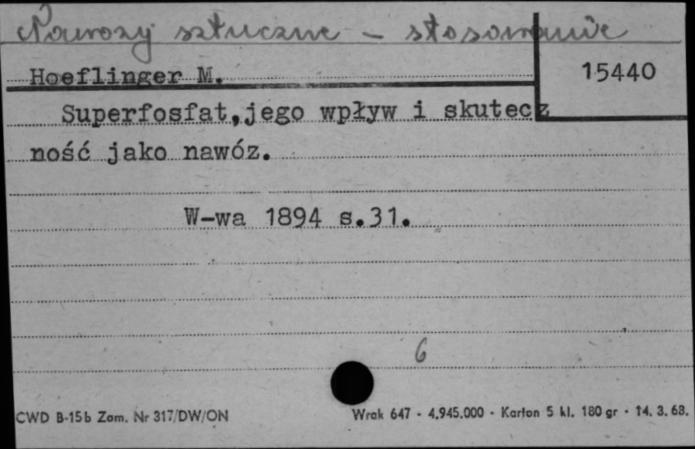 Nawozy sztuczne - stosowanie
Hoeflinger M.
15440
Superfosfat,jego wpływ i skutecz
ność jako nawóz.
W-wa 1894 s.31.
6
CWD B-15b Zam. Nr 317/DW/ON
Wrak 647 - 4.945.000 - Karton 5 kl. 180 gr - 14. 3. 63.